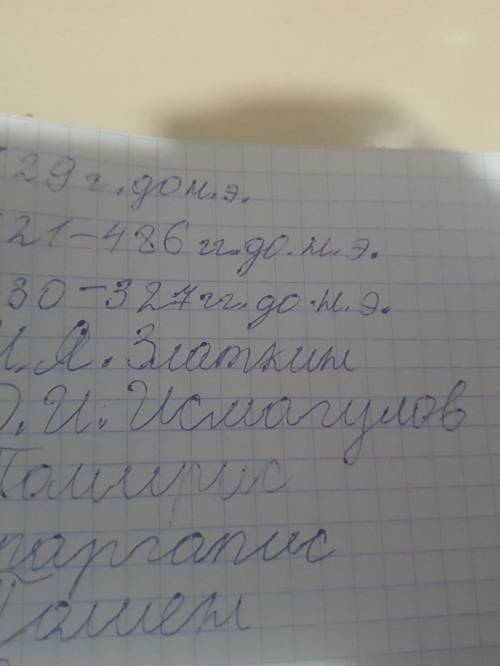 29 г. до н. э.
21-486 гг. до. н. э.
30-327 гг. до. н. э.
Я. Златкин
И. Исмагулов
Томирис
паргапис